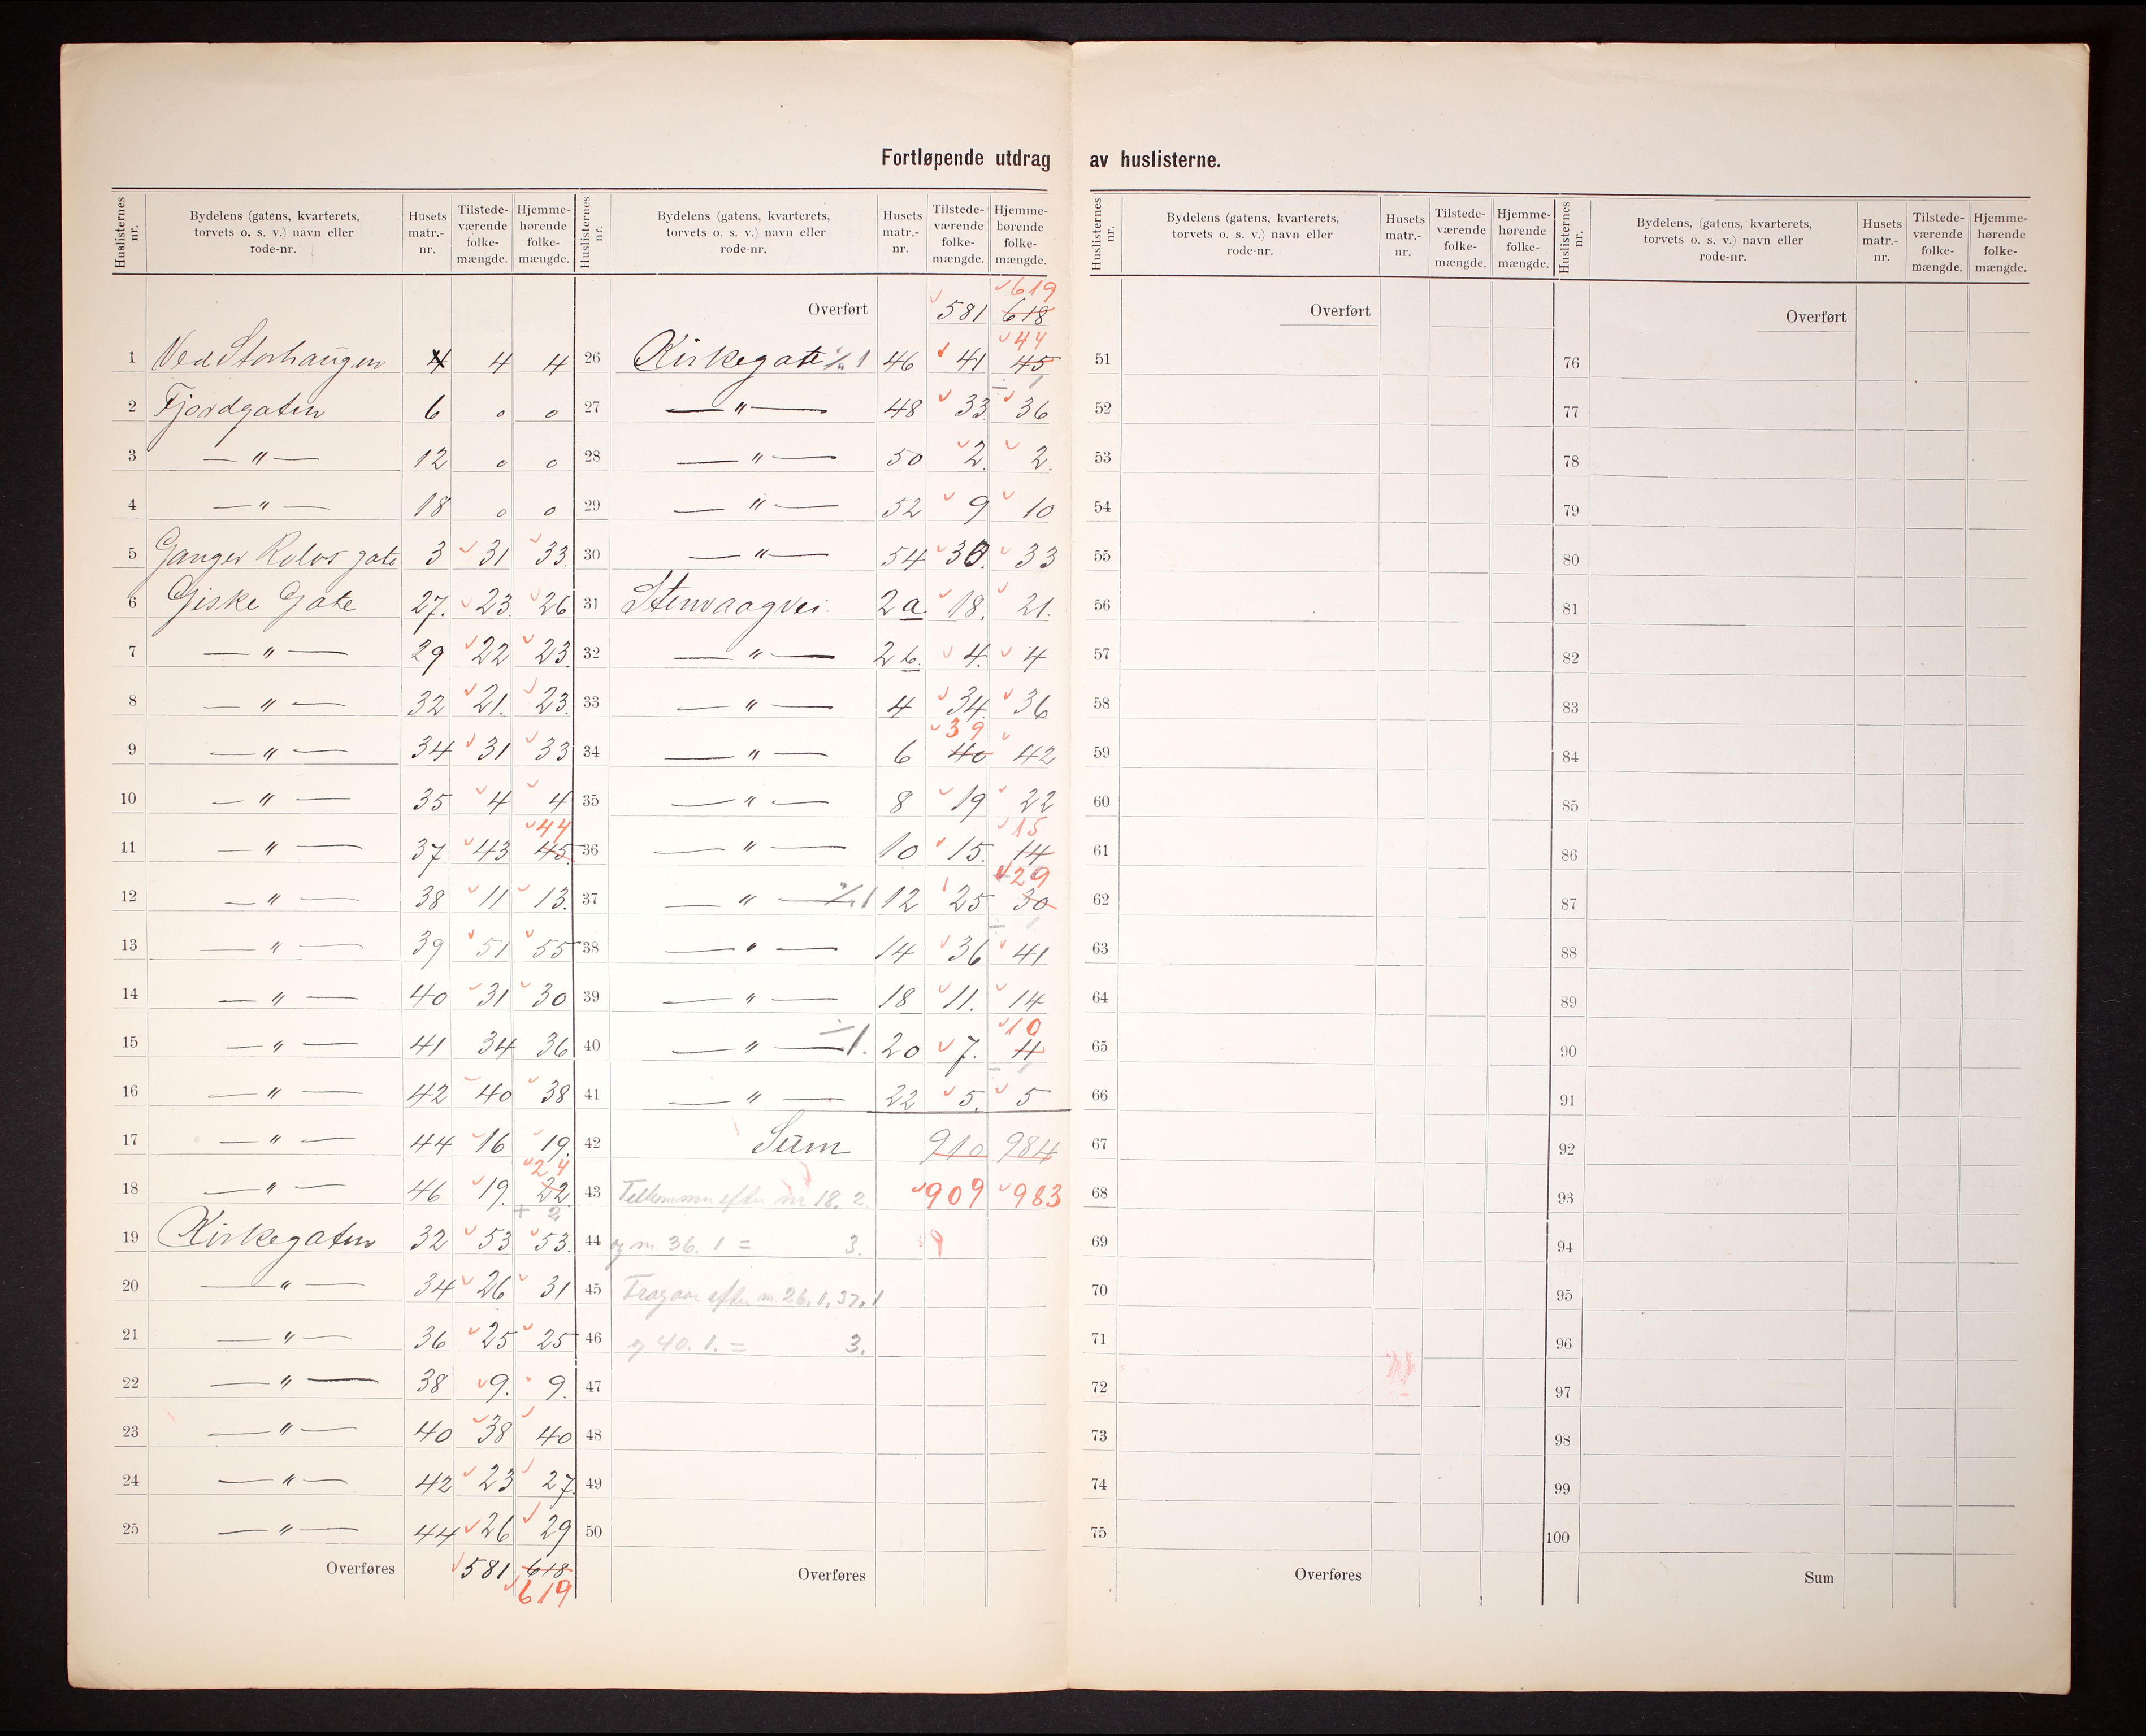 Fortløpende utdrag av huslisterne.
Huslisternes nr. | Bydelens (gatens, kvarterets, torvets o. s. v.) navn eller rode-nr. | Husets matr.-nr. | Tilstede-værende folke-mængde. | Hjemme-hørende folke-mængde.
1 Ved Storhaugen 4 4 4
2 Fjordgaten 6 0 0
3 — " — 12 0 0
4 — " — 18 0 0
5 Ganger Rolvs gate 3 31 33.
6 Giske Gate 27. 23. 26
7 — " — 29 22 23.
8 — " — 32 21. 23.
9 — " — 34 31 33
10 — " — 35 4 4
11 — " — 37 43 45. 44
12 — " — 38 11 13.
13 — " — 39 51 55
14 — " — 40 31 30
15 — " — 41 34 36
16 — " — 42 40 38
17 — " — 44 16 19.
18 — " — 46 19. 22. 24
+ 2
19 Kirkegaten 32 53 53.
20 — " — 34 26 31
21 — " — 36 25 25
22 — " — 38 9. 9.
23 — " — 40 38 40
24 — " — 42 23 27.
25 — " — 44 26 29
Overføres 581 618
619
Huslisternes nr. | Bydelens (gatens, kvarterets, torvets o. s. v.) navn eller rode-nr. | Husets matr.-nr. | Tilstede-værende folke-mængde. | Hjemme-hørende folke-mængde.
619
Overført 581 618
44
26 Kirkegate ÷ 1 46 41 45
÷ 1
27 — " — 48 33. 36
28 — " — 50 2. 2.
29 — " — 52 9 10
30 — " — 54 30. 33
31 Stenvaagvei. 2a 18. 21.
32 — " — 2b. 4. 4
33 — " — 4 34. 36
39
34 — " — 6 40 42
35 — " — 8 19 22
15
36 — " — 10 15. 14
29
37 — " — ÷ 1 12 25 30
÷ 1
38 — " — 14 36 41
39 — " — 18 11. 14
10
40 — " — ÷ 1. 20 7. 11
÷ 1
41 — " — 22 5. 5
42 Sum 910 984
43 Tilkommer efter nr 18. 2. 909 983
44 og nr. 36. 1 = 3. 9
45 Fragaar efter nr. 26. 1, 37. 1
46 og 40. 1. = 3.
47
48
49
50
Overføres
Huslisternes nr. | Bydelens (gatens, kvarterets, torvets o. s. v.) navn eller rode-nr. | Husets matr.-nr. | Tilstede-værende folke-mængde. | Hjemme-hørende folke-mængde.
Overført
51
52
53
54
55
56
57
58
59
60
61
62
63
64
65
66
67
68
69
70
71
72
73
74
75
Overføres
Huslisternes nr. | Bydelens, (gatens, kvarterets, torvets o. s. v.) navn eller rode-nr. | Husets matr.-nr. | Tilstede-værende folke-mængde. | Hjemme-hørende folke-mængde.
Overført
76
77
78
79
80
81
82
83
84
85
86
87
88
89
90
91
92
93
94
95
96
97
98
99
100
Sum